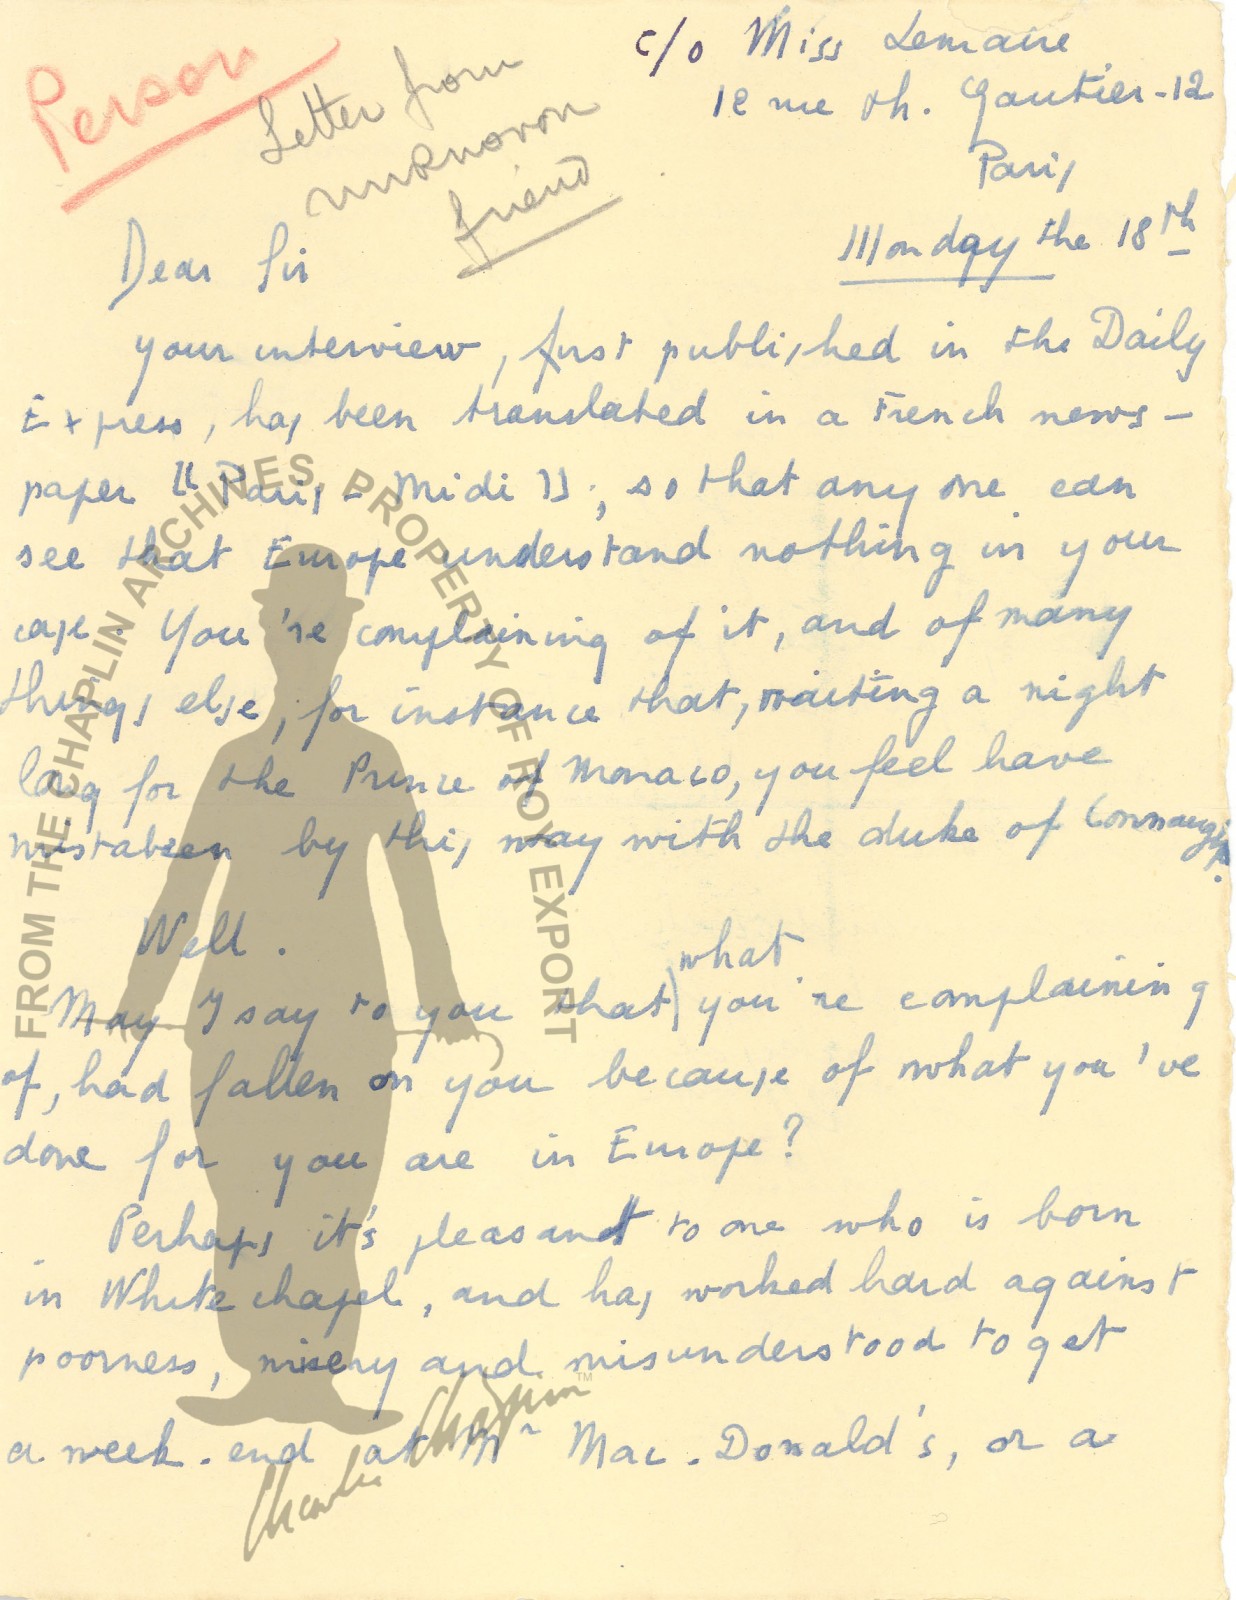 Person
Letter from
unknown
friend
c/o Miss Lemaire
12 rue th. Gautier - 12
Paris
Monday the 18th
Dear Sir
your interview, first published in the Daily
Express, has been translated in a French news-
paper "Paris - Midi"; so that any one can
see that Europe understand nothing in your
case. You're complaining of it, and of many
things else, for instance that, waiting a night
long for the Prince of Monaco, you feel have
mistabeen by this way with the duke of Connaught.
Well.
May I say to you that what you're complaining
of, had fallen on you because of what you've
done for you are in Europe?
Perhaps it's pleasant to one who is born
in White chapel, and has worked hard against
poorness, misery and misunderstood to get
a week-end at Mr Mac. Donald's, or a
FROM THE CHAPLIN ARCHIVES, PROPERTY OF ROY EXPORT
Charlie Chaplin
TM